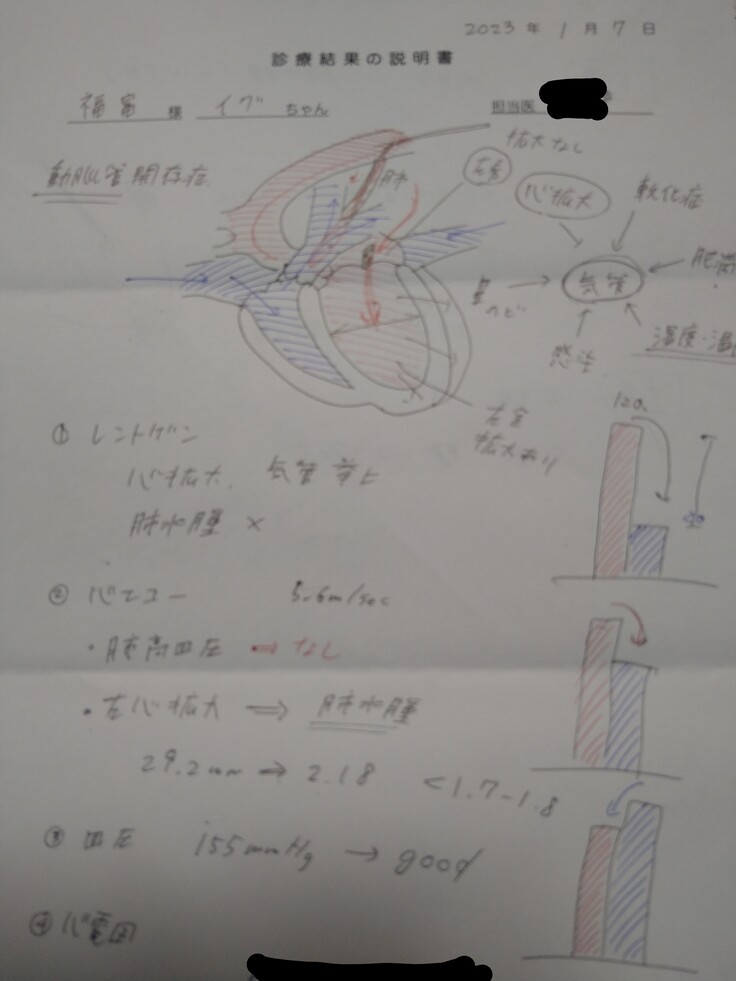 2023 年 1 月 7 日
診療結果の説明書
様 イブ ちゃん 担当医
動脈管開存症
拡大なし
肺
左房
心拡大
軟化症
気管
首
感染
左室
拡大あり
120
① レントゲン
心拡大 気管
肺水腫 ×
② 心エコー 5.6m/sec
・肺高血圧 ⇒ なし
・左心拡大 ⇒ 肺水腫
29.2mm → 2.18 < 1.7-1.8
③ 血圧 155mmHg → good
④ 心電図